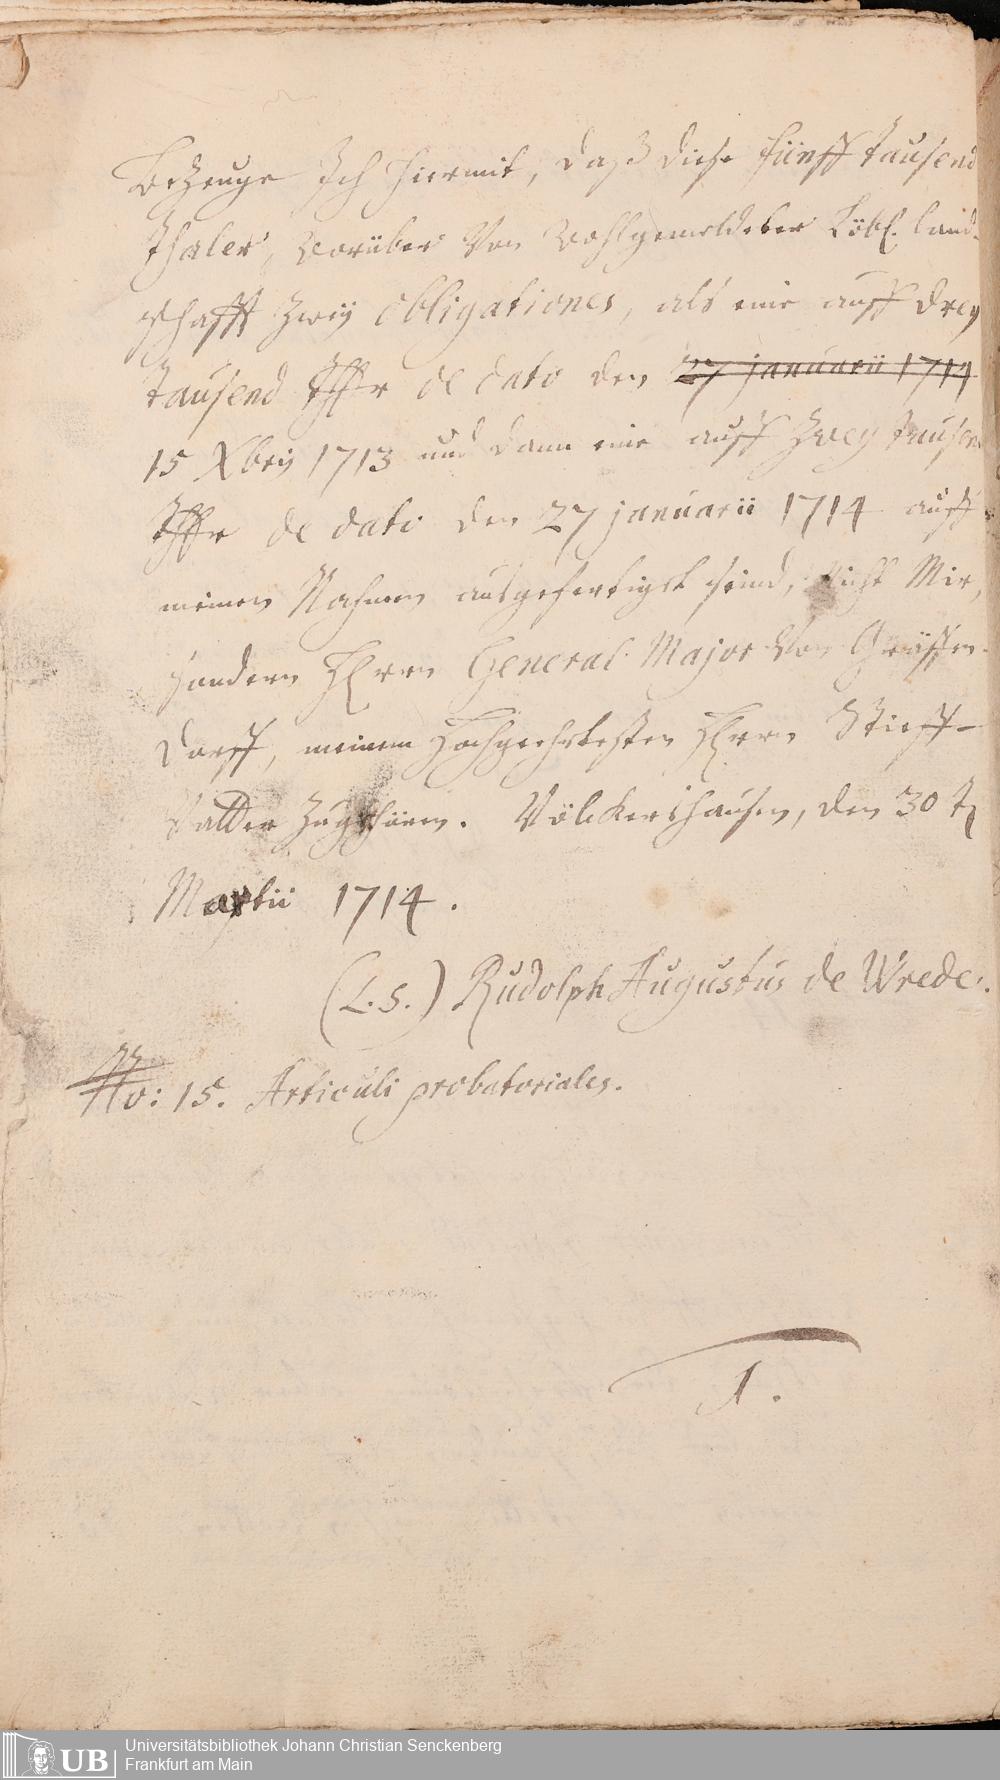 Bezeuge Ich hiermit, daß diese fünff tausend
Thaler, worüber von wohlgemeldeter Löbl. land-
schafft zweÿ Obligationes, als eine auff dreÿ
tausend Thlr de dato den 27 januarii 1714
15 Xbris 1713 und dann eine auff zweÿ tausend
Thlr de dato den 27 januarii 1714 auff
meinen Nahmen ausgefertiget seind, nicht Mir,
sondern Herrn General Major von Gräffen-
dorff, meinem Hochgeehrtesten Herrn Stieff-
Vatter Zugehören. Völckershausen, den 30 t
Martii 1714.
(L. S.) Rudolph Augustus de Wrede.
No: 15. Articuli probatoriales.
1.
UB Universitätsbibliothek Johann Christian Senckenberg
Frankfurt am Main